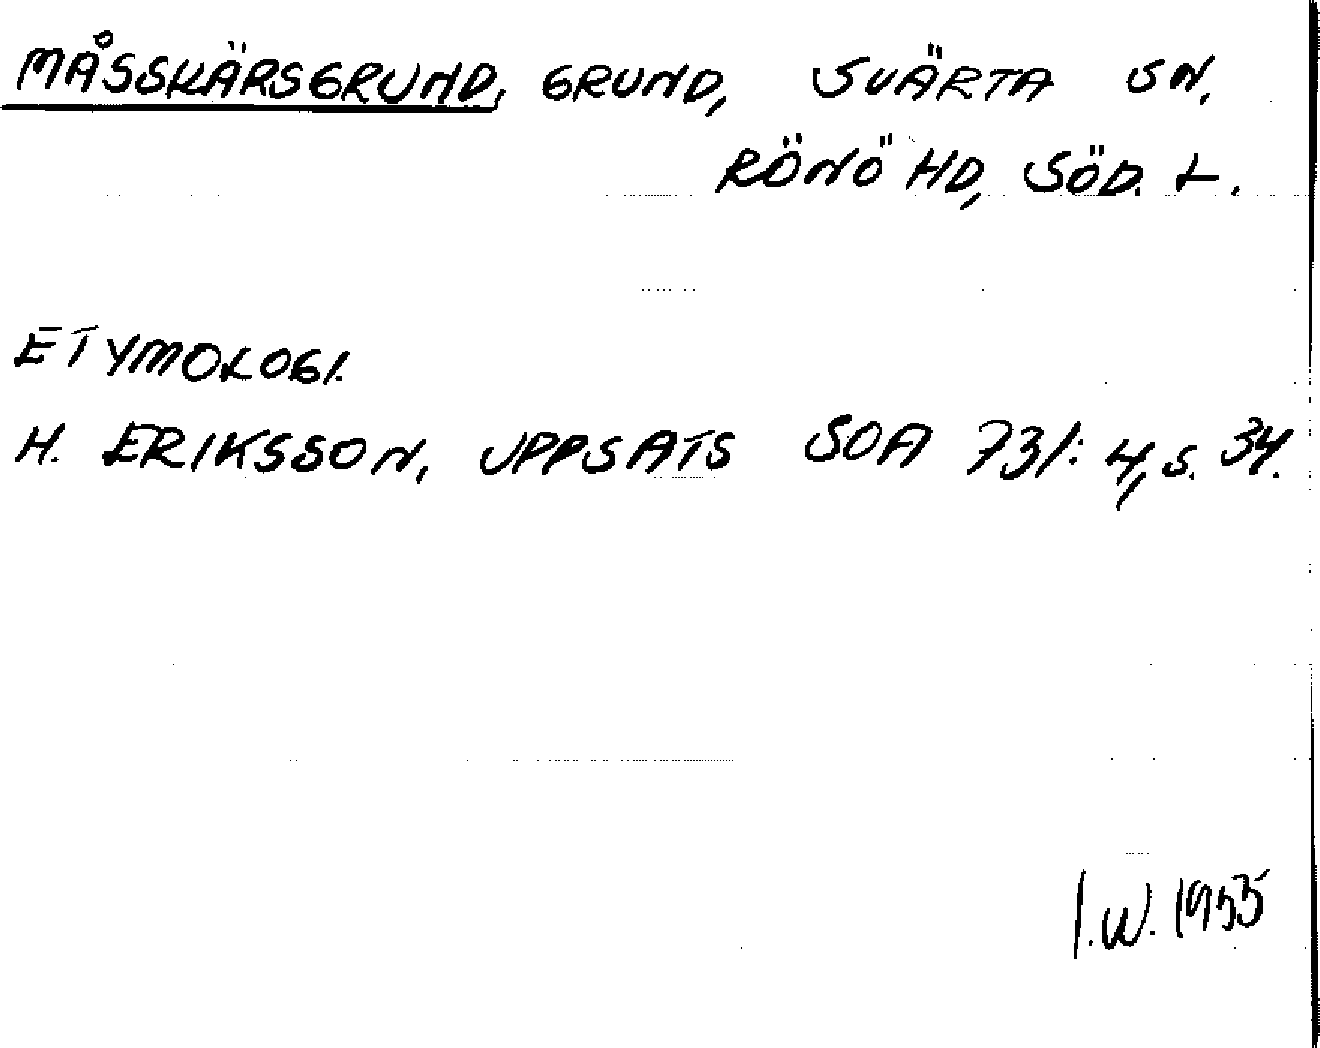 MÅSSKÄRSGRUND, GRUND, SVÄRTA SN,
RÖNÖ HD, SÖD. L.
ETYMOLOGI.
H. ERIKSSON, UPPSATS SOA 731: 4, s. 34.
I.W. 1955